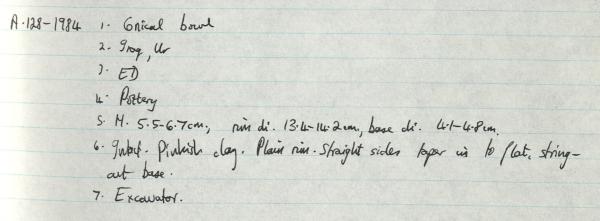 A.128-1984 1. Conical bowl
2. Iraq, Ur
3. ED
4. Pottery
5. H. 5.5-6.7cm, rim di. 13.4-14.2cm, base di. 4.1-4.8cm.
6. Intact. Pinkish clay. Plain rim. Straight sides taper in to flat, string-
cut base.
7. Excavator.